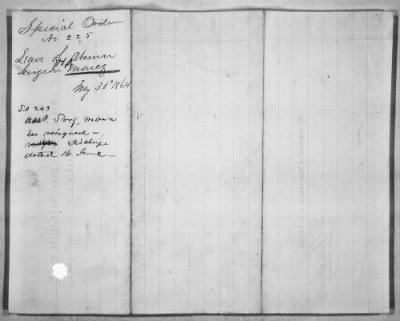 Special Order
No 225
Leave of Absence
Surgeon
May 30" 1864
S.O 243
asst. Surg, Mann
has resigned
Discharge
dated 16 June